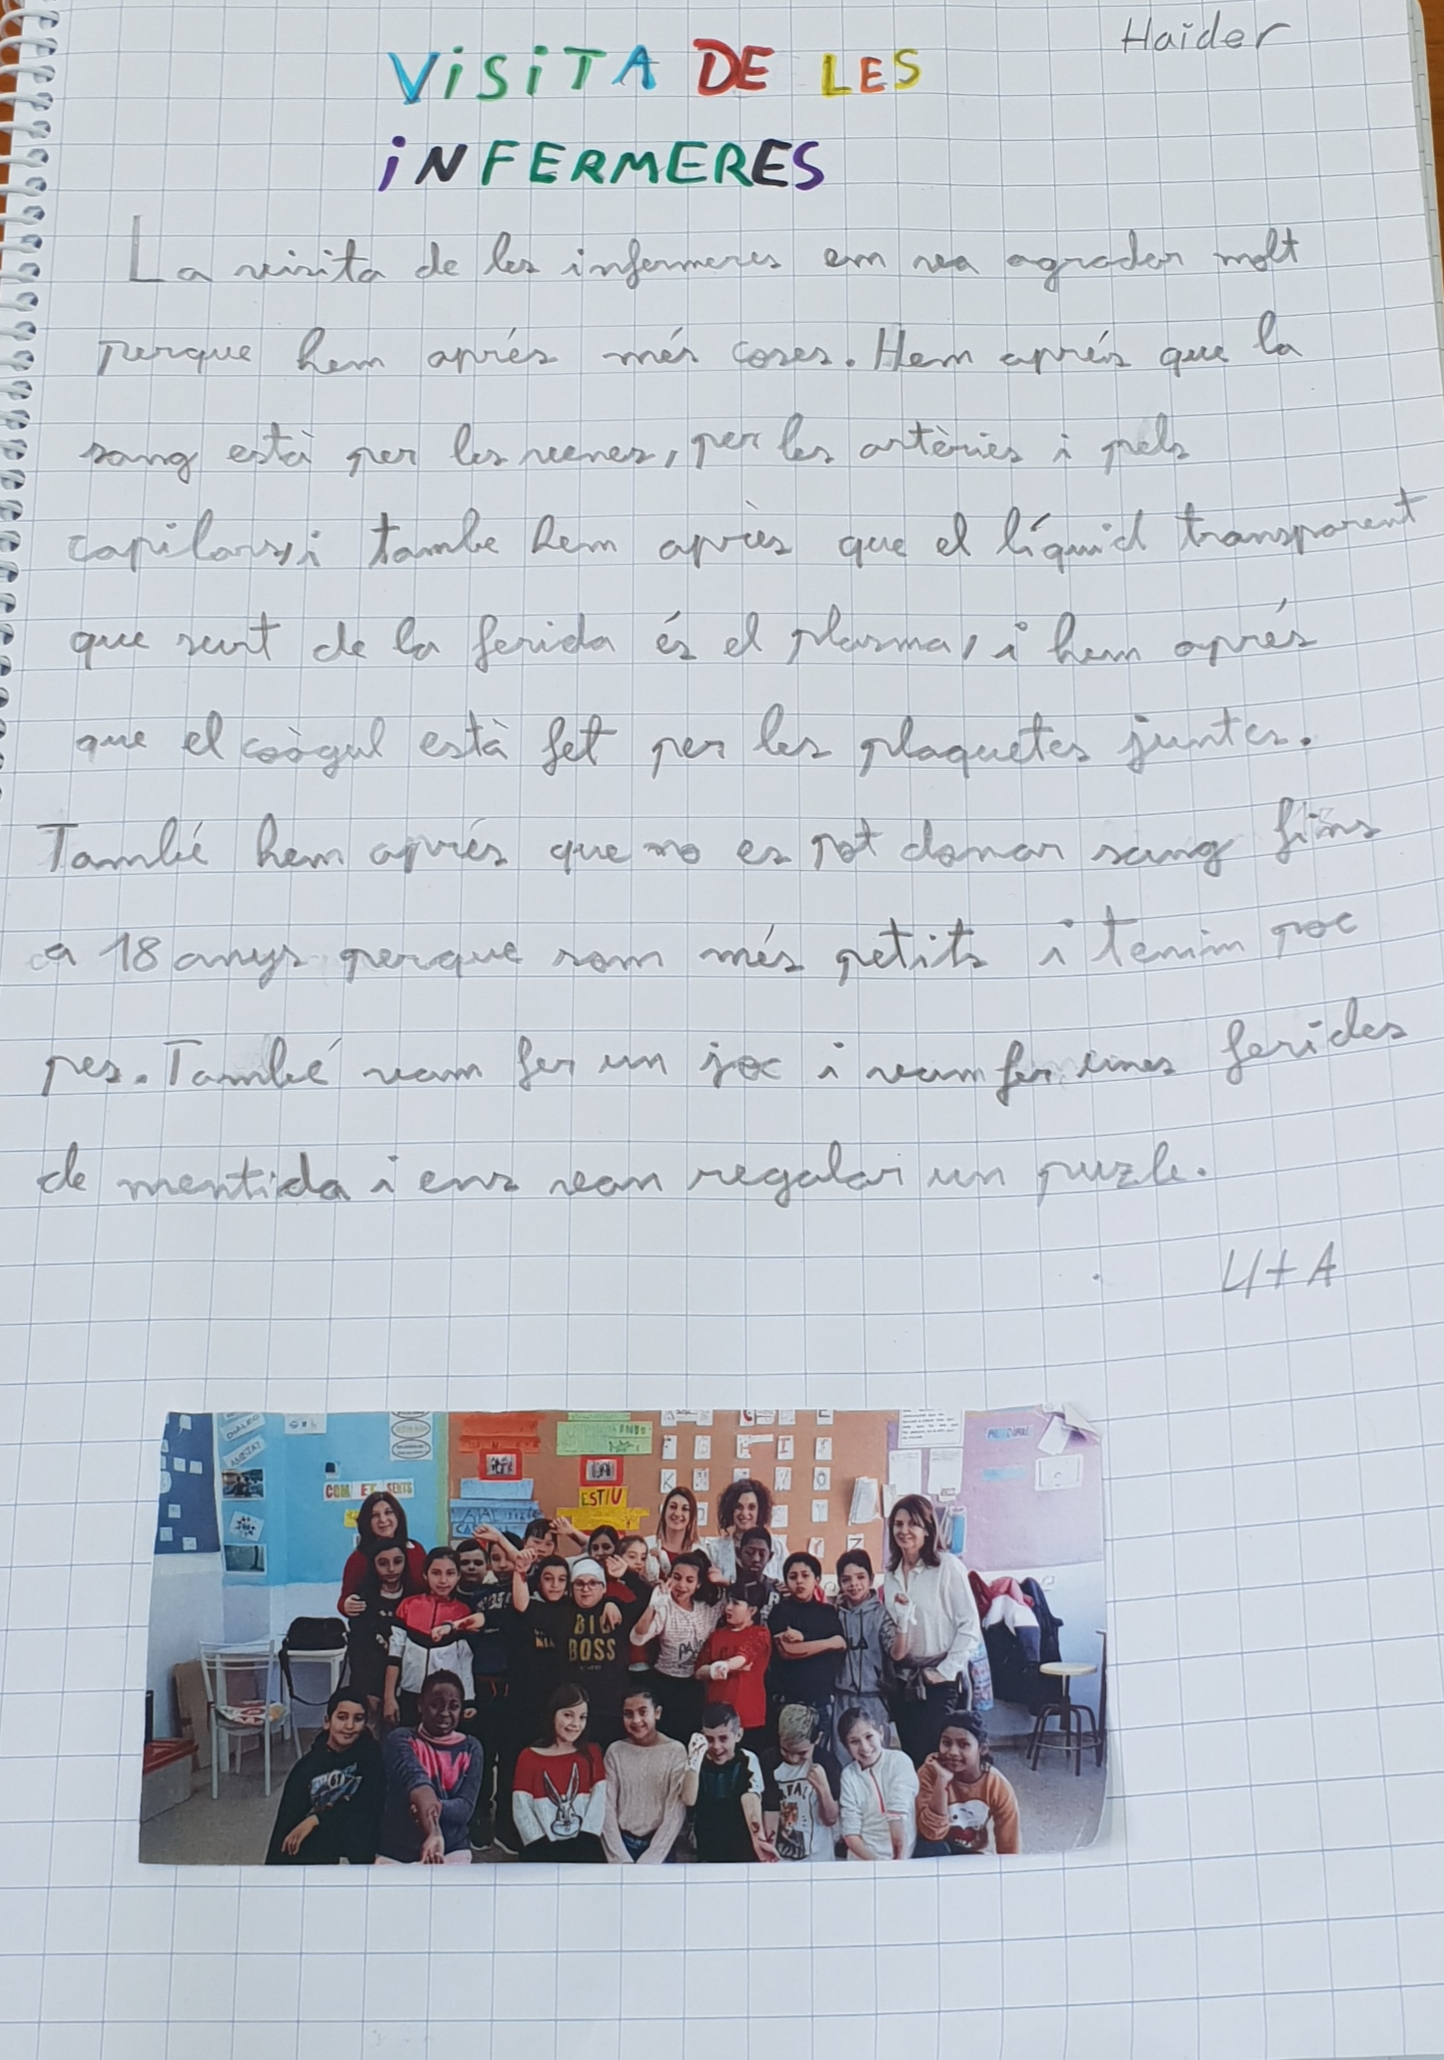 Haider
ViSiTA DE LES
iNFERMERES
La visita de les infermeres em va agradar molt
perque hem aprés més coses. Hem aprés que la
sang està per les venes, per les artèries i pels
capilars, i tambe hem aprés que el líquid transparent
que surt de la ferida és el plasma, i hem aprés
que el coàgul està fet per les plaquetes juntes.
També hem aprés que no es pot donar sang fins
a 18 anys perque som més petits i tenim poc
pes. També vam fer un joc i vam fer unes ferides
de mentida i ens van regalar un puzle.
4t A
COM ET SENTS
ESTIU
BIG
BOSS